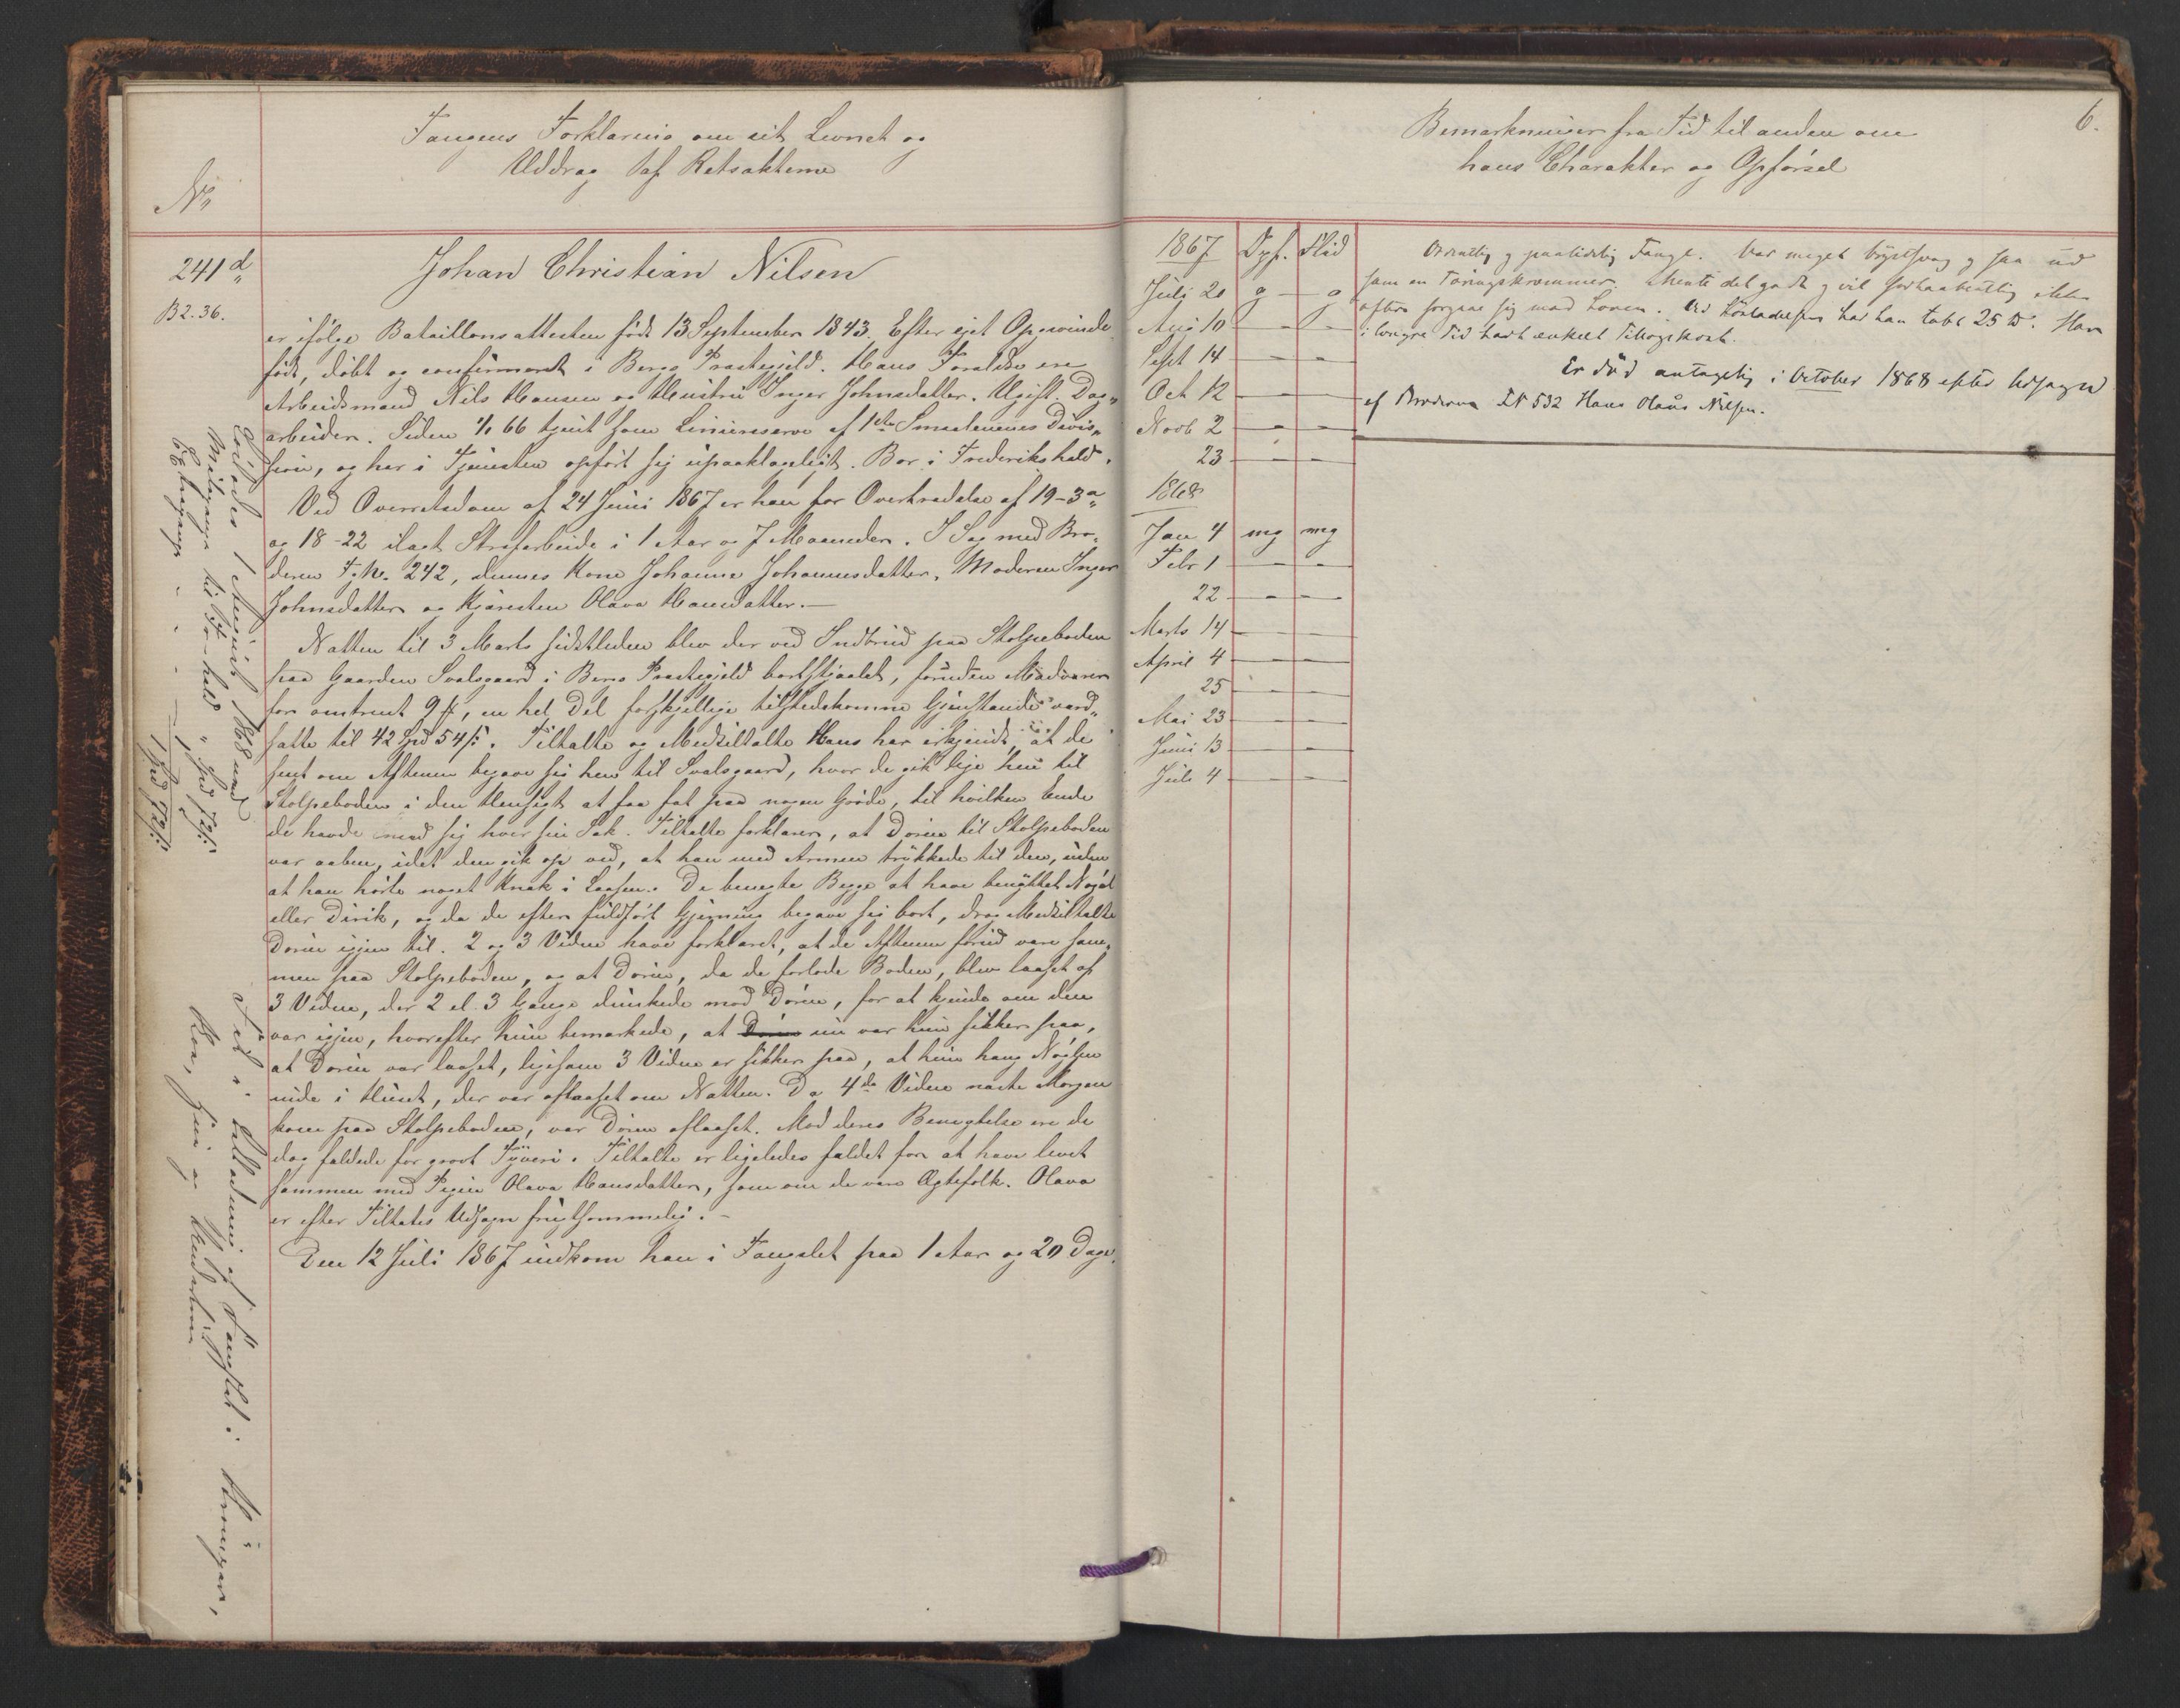 Fangens Forklaring om sit Levnet og
Uddrag af Retsakterne
No
241 d
B2.36.
Johan Christian Nilsen
er ifølge Bataillonsattesten født 13 September 1843. Efter eget Opgivende
født, døbt og confirmeret i Bergs Præstegjeld. Hans Forældre ere
Arbeidsmand Nils Hansen og Hustru Inger Johnsdatter. Ugift. Dag„
arbeider. Siden 1/1 66 tjent som Liniereserve af 1ste Smaalenenes Divis„
sion, og har i Tjenesten opført sig upaaklageligt. Bor i Frederikshald.
Ved Overretsdom af 24 Juni 1867 er han for Overtrædelse af 19-3a
og 18-22 ilagt Strafarbeide i 1 Aar og 7 Maaneder. I Sag med Bro„
deren F.No. 242, dennes Kone Johanne Johannesdatter, Moderen Inger
Johnsdatter og Kjæresten Olava Hansdatter.—
Natten til 3 Marts sidstleden blev der ved Indbrud paa Stolpeboden
paa Gaarden Svalsgaard i Bergs Præstegjeld bortstjaalet, foruden Madvarer
for omtrent 9 ß, en hel Del forskjellige tilstedekomne Gjenstande værd„
satte til 42 Spd 54 ß. Tiltalte og Medtiltalte Hans har erkjendt, at de
sent om Aftenen begave sig hen til Svalsgaard, hvor de gik lige hen til
Stolpeboden i den Hensigt at faa fat paa nogen Føde, til hvilken Ende
de havde med sig hver sin Sæk. Tiltalte forklarer, at Døren til Stolpeboden
var aaben, idet den gik op ved, at han med Armen trykkede til den, uden
at han hørte noget Knæk i Laasen. De benegte Begge at have benyttet Nøgel
eller Dirik, og da de efter fuldført Gjerning begave sig bort, drog Medtiltalte
Døren igjen til. 2 og 3 Vidne have forklaret, at de Aftenen forud vare sam„
men paa Stolpeboden, og at Døren, da de forlode Boden, blev laaset af
3 Vidne, der 2 el. 3 Gange dunkede mod Døren, for at kjende om den
var igjen, hvorefter hun bemærkede, at nu var hun sikker paa,
at Døren var laaset, ligesom 3 Vidne er sikker paa, at hun hang Nøglen
inde i Huset, der var aflaaset om Natten. Da 4de Vidne næste Morgen
kom paa Stolpeboden, var Døren aflaaset. Mod deres Benegtelse ere de
dog fældede for grovt Tyveri. Tiltalte er ligeledes fældet for at have levet
sammen med Pigen Olava Hansdatter, som om de vare Ægtefolk. Olava
er efter Tiltaltes Udsagn frugtsommelig.—
Den 12 Juli 1867 indkom han i Fangslet paa 1 Aar og 20 Dage.
Løslades 1 August 1868 med
Reisepenge til F-hald
1 Spd 72 ß
Bemærkninger fra Tid til anden om
hans Charakter og Opførsel
6.
1867 Opf. Flid
Juli 20 g — g
Aug 10 — —
Sept 14 — —
Oct 12 — —
Novb 2 — —
23 — —
1868
Jan 4 mg mg
Febr 1 — —
22 — —
Marts 14 — —
April 4 — —
25 — —
Mai 23 — —
Juni 13 — —
Juli 4 — —
Ordentlig og paalidelig Fange. Var meget brystsvag og saa ud
som en Tæringskrammer. Mente det godt og vil forhaabentlig ikke
oftere forgaae sig mod Loven. Ved Løsladelsen har han tabt 25 ℔. Han
i længere Tid havt enkelt Tillægskost.
Er död antagelig i October 1868 efter Udsagn
af Broderen FN 532 Hans Olaus Nilsen.